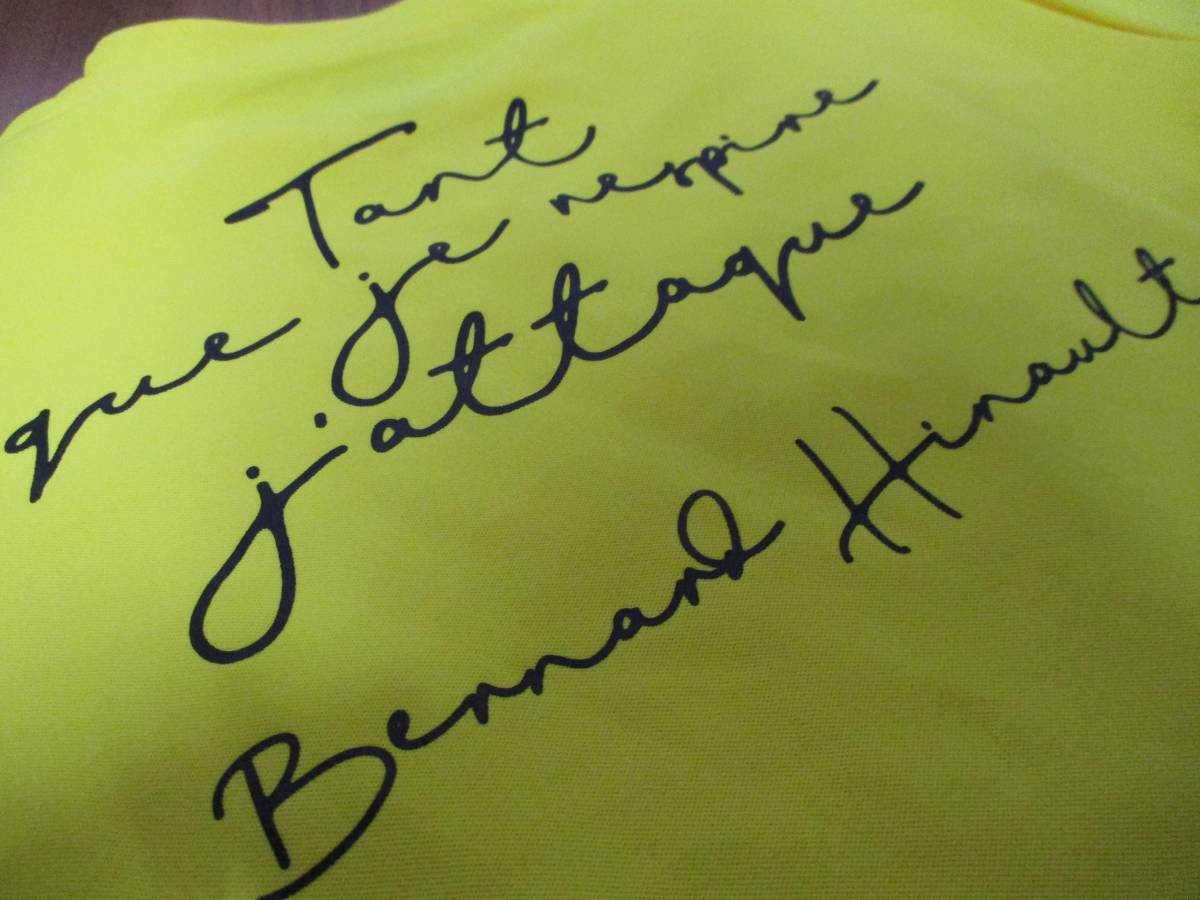 Tant
que je respire
j'attaque
Bernard Hinault